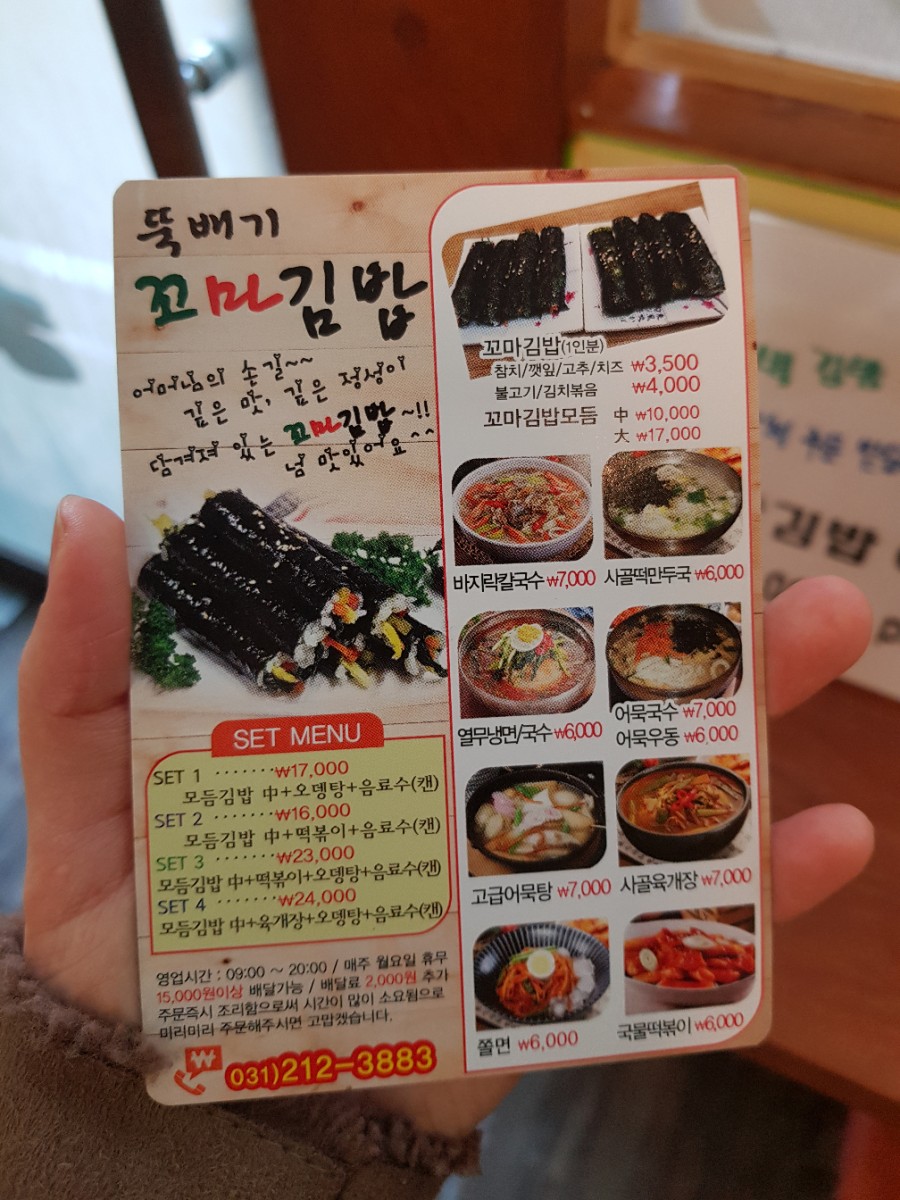 뚝배기
꼬마김밥
어머님의 손길~~
깊은 맛, 깊은 정성이
담겨져 있는 꼬마김밥~!!
넘 맛있어요^^
SET MENU
SET 1 ·······₩17,000
모듬김밥 中+오뎅탕+음료수(캔)
SET 2 ·······₩16,000
모듬김밥 中+떡볶이+음료수(캔)
SET 3 ·······₩23,000
모듬김밥 中+떡볶이+오뎅탕+음료수(캔)
SET 4 ·······₩24,000
모듬김밥 中+육개장+오뎅탕+음료수(캔)
영업시간 : 09:00 ~ 20:00 / 매주 월요일 휴무
15,000원이상 배달가능 / 배달료 2,000원 추가
주문즉시 조리함으로써 시간이 많이 소요됨으로
미리미리 주문해주시면 고맙겠습니다.
₩
031)212-3883
꼬마김밥(1인분)
참치/깻잎/고추/치즈 ₩3,500
불고기/김치볶음 ₩4,000
꼬마김밥모듬 中 ₩10,000
大 ₩17,000
바지락칼국수 ₩7,000 사골떡만두국 ₩6,000
열무냉면/국수 ₩6,000
어묵국수 ₩7,000
어묵우동 ₩6,000
고급어묵탕 ₩7,000 사골육개장 ₩7,000
쫄면 ₩6,000 국물떡볶이 ₩6,000
김밥